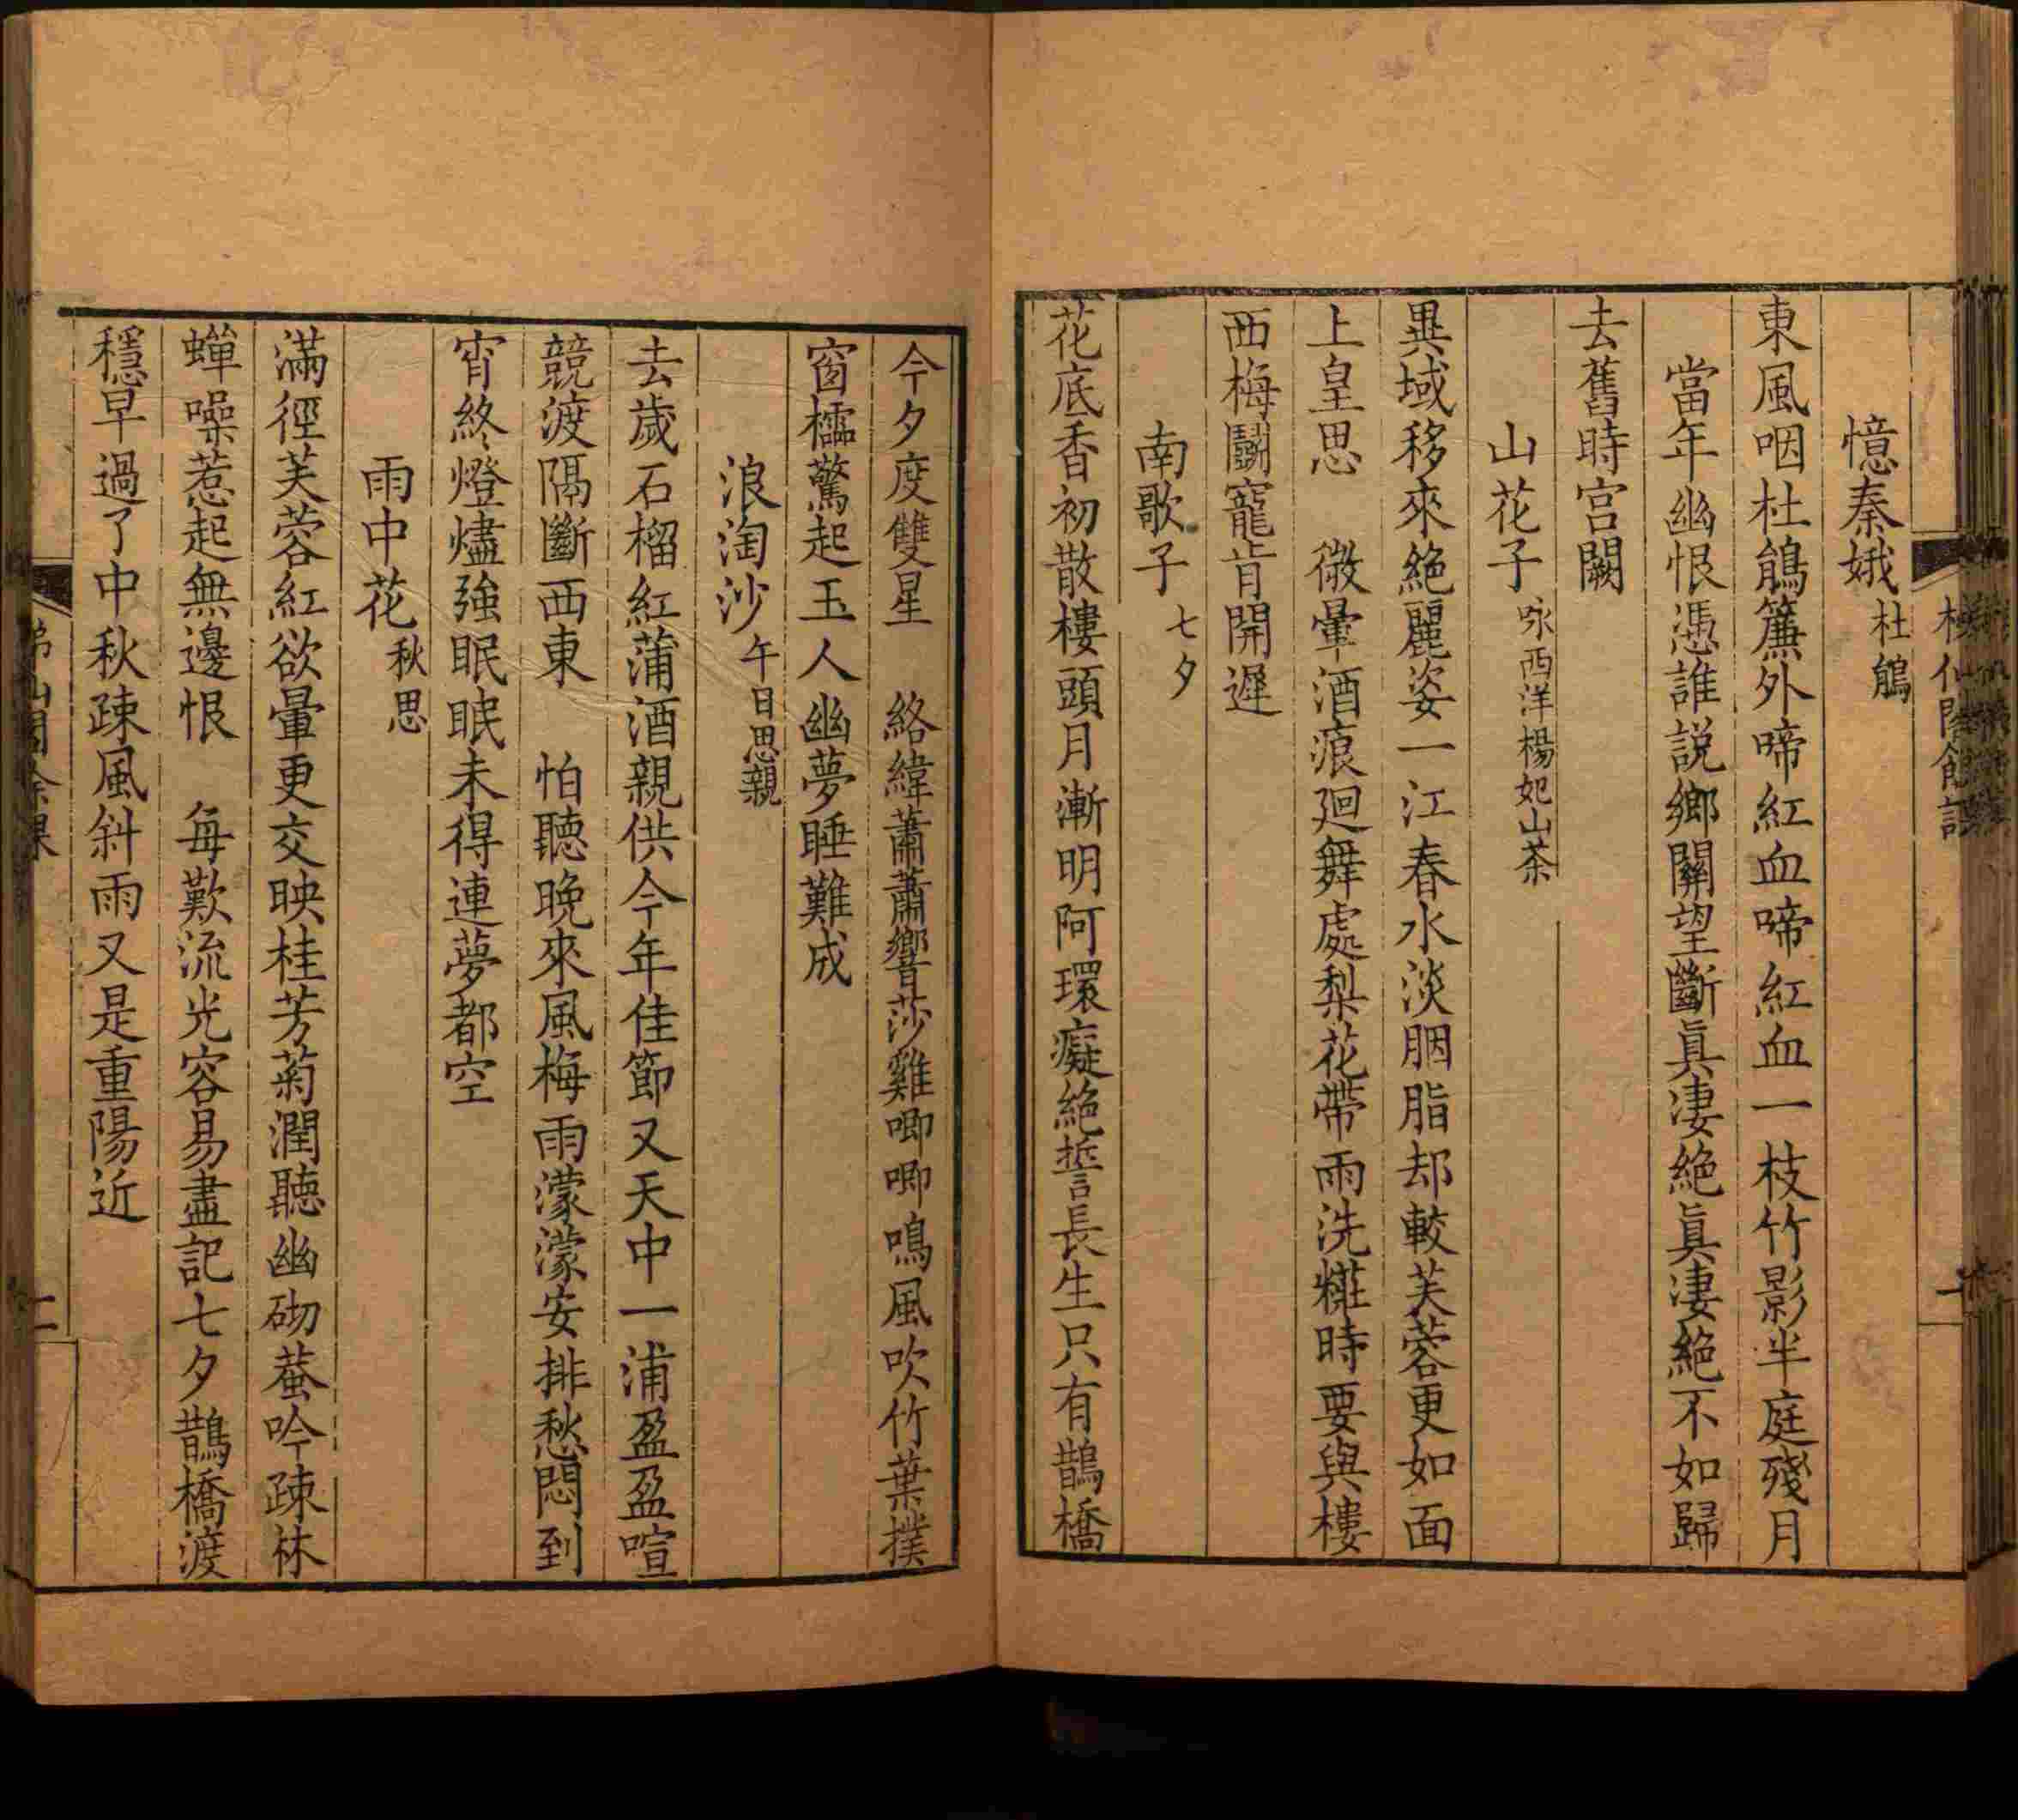 憶秦娥 杜鵑
東風咽杜鵑簾外啼紅血啼紅血一枝竹影半庭殘月
當年幽恨憑誰說鄉關望斷眞凄絶眞凄絶不如歸
去舊時宮闕
山花子 咏西洋楊妃山茶
異域移來絶麗姿一江春水淡胭脂却較芙蓉更如面
上皇思　微暈酒痕廻舞處梨花帶雨洗糚時要與樓
西梅鬭寵肯開遲
南歌子 七夕
花底香初散樓頭月漸明阿環癡絶誓長生只有鵲橋
今夕度雙星　絡緯蕭蕭響莎雞唧唧鳴風吹竹葉撲
窗櫺驚起玉人幽夢睡難成
浪淘沙 午日思親
去歲石榴紅蒲酒親供今年佳節又天中一浦盈盈喧
競渡隔斷西東　怕聽晚來風梅雨濛濛安排愁悶到
宵終燈燼強眠眠未得連夢都空
雨中花 秋思
滿徑芙蓉紅欲暈更交映桂芳菊潤聽幽砌蛬吟疎林
蟬噪惹起無邊恨　每歎流光容易盡記七夕鵲橋渡
穩早過了中秋疎風斜雨又是重陽近
二